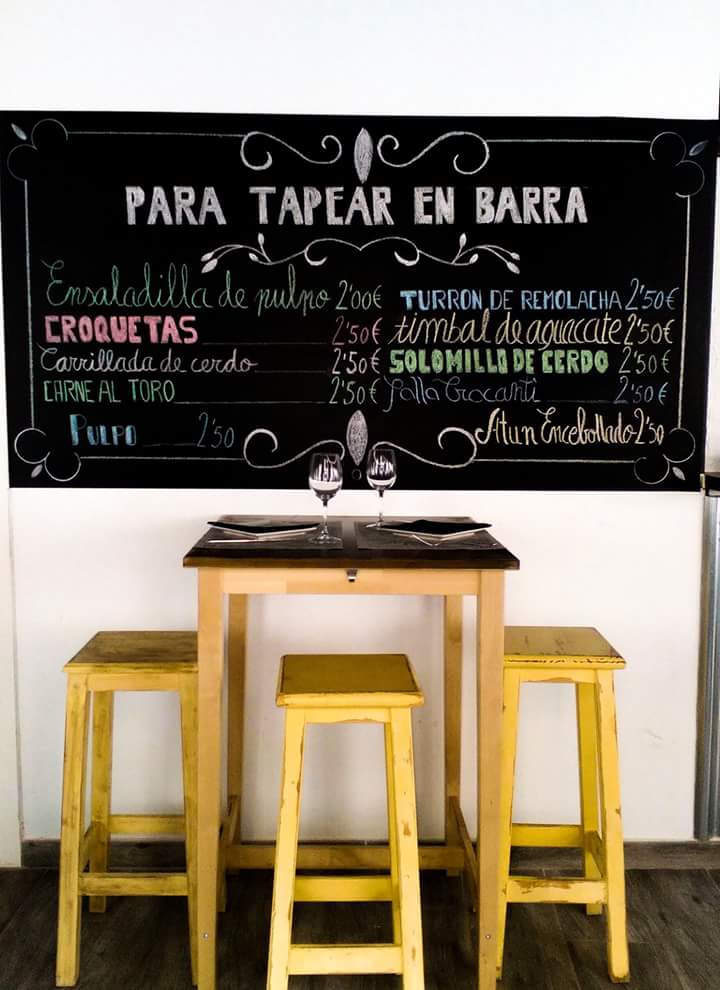 PARA TAPEAR EN BARRA
Ensaladilla de pulpo 2'00€
CROQUETAS 2'50€
Carrillada de cerdo 2'50€
CARNE AL TORO 2'50€
PULPO 2'50
TURRON DE REMOLACHA 2'50€
timbal de aguacate 2'50€
SOLOMILLO DE CERDO 2'50€
falla Crocanti 2'50€
Atun Encebollado 2'50